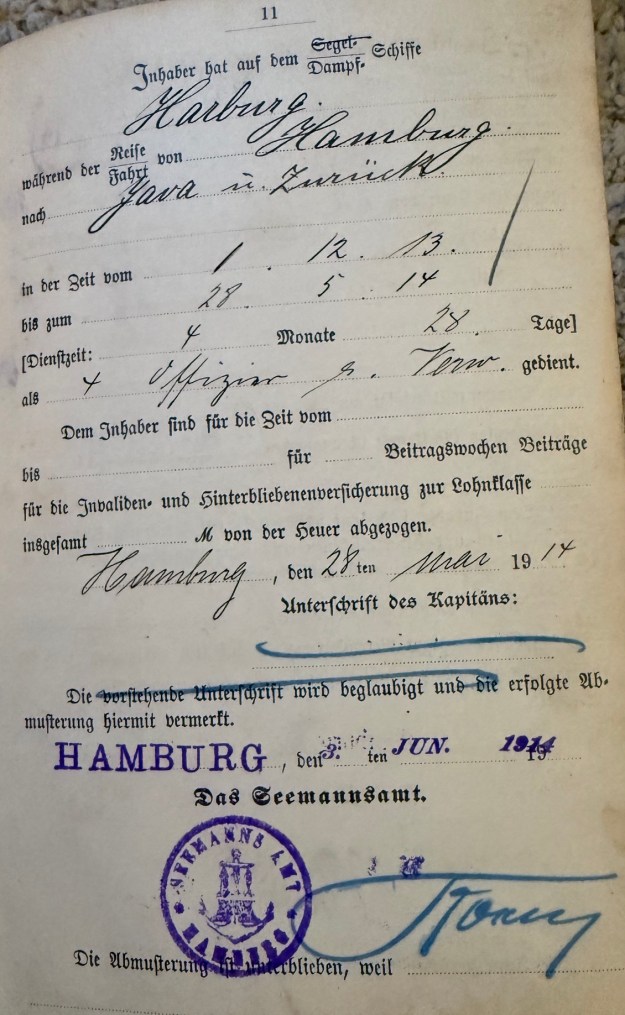 11
Inhaber hat auf dem Segel- Dampf- Schiffe
Harburg.
während der Reise Fahrt von Hamburg.
nach Java u. Zurück.
in der Zeit vom 1. 12. 13.
bis zum 28. 5. 14
[Dienstzeit: 4 Monate 28. Tage]
als 4 Offizier Verw. gedient.
Dem Inhaber sind für die Zeit vom
bis für Beitragswochen Beiträge
für die Invaliden- und Hinterbliebenenversicherung zur Lohnklasse
insgesamt M von der Heuer abgezogen.
Hamburg, den 28ten Mai 1914
Unterschrift des Kapitäns:
Die vorstehende Unterschrift wird beglaubigt und die erfolgte Ab-
musterung hiermit vermerkt.
HAMBURG, den 3. ten JUN. 1914 19
Das Seemannsamt.
SEEMANNS AMT
HAMBURG
Die Abmusterung ist unterblieben, weil